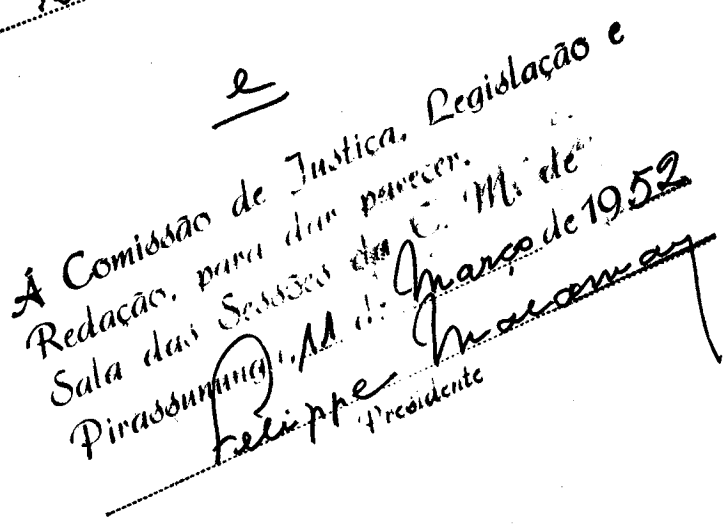 e
À Comissão de Justiça, Legislação e
Redação, para dar parecer.
Sala das Sessões da C. M. de
Pirassununga, 11 de Março de 1952
Felippe
Presidente